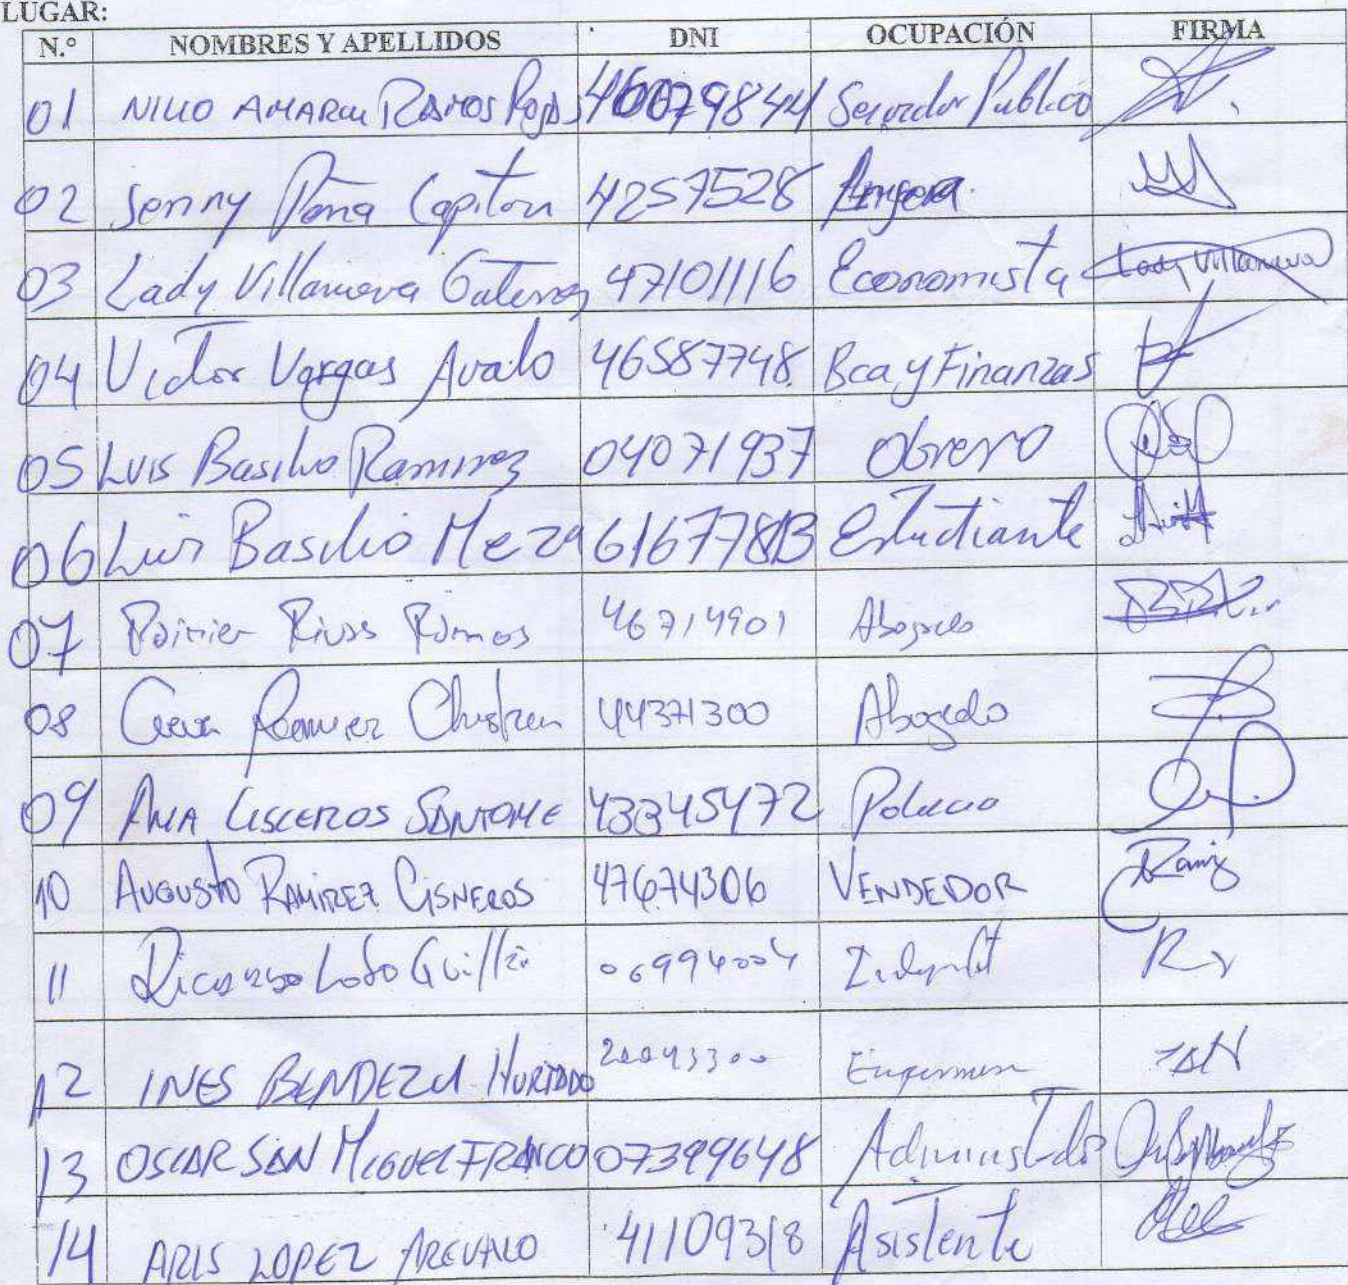 LUGAR:
N.° NOMBRES Y APELLIDOS DNI OCUPACIÓN FIRMA
01 NILLO AMARU RAMOS Rojas Servidor Publico
02 Jenny Peña Capiton 4257528
03 Lady Villanueva Gutierrez 47101116 Economista Lady Villanueva
04 Victor Vargas Avalo 46587748 Bca y Finanzas
05 LUIS Basilio Ramirez 04071937 Obrero
06 Luis Basilio Meza Estudiante
07 Rivas Ramos 46714901 Abogado
08 Ramirez 44371300 Abogado
09 ANA CISCEROS SANTOME 43345472
10 AUGUSTO RAMIREZ CISNEROS 47674306 VENDEDOR Ramiz
11 Ricardo Lobo Guillén
12 INES BENDEZU HURTADO
13 OSCAR SAN MIGUEL FRANCO 07399648
14 ARIS LOPEZ AREVALO 41109318 Asistente